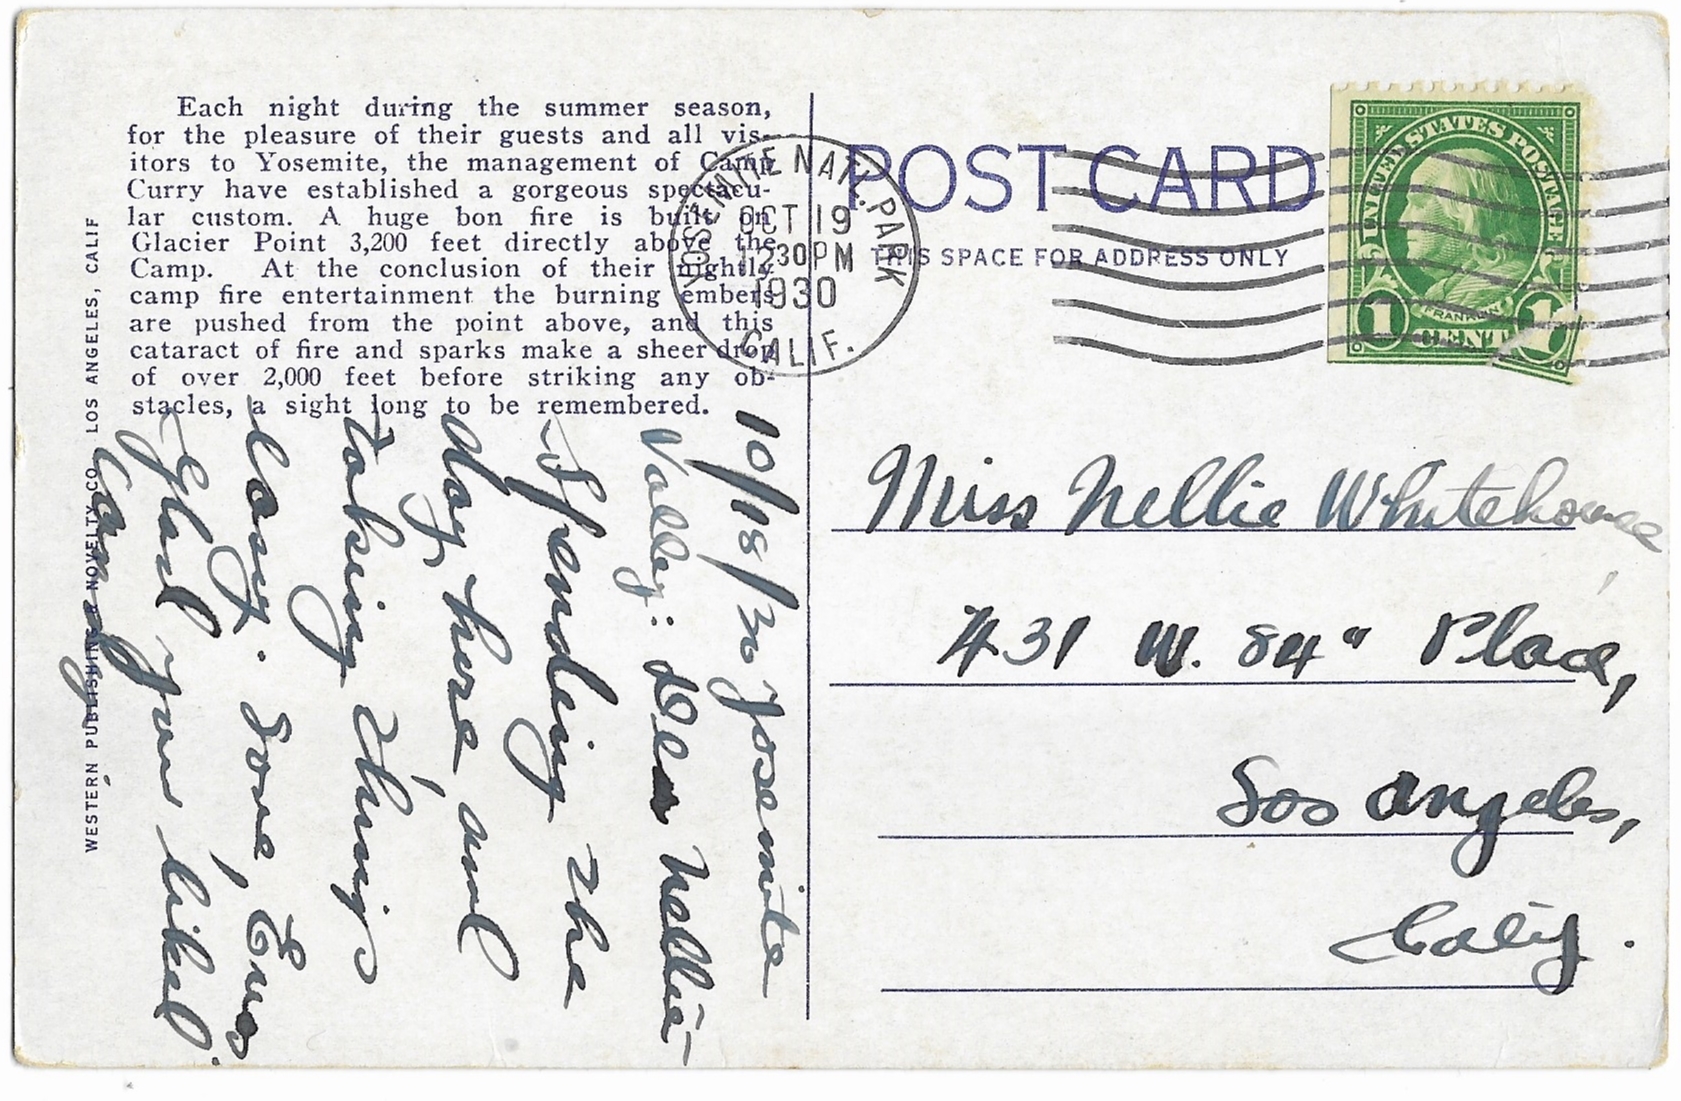 Each night during the summer season,
for the pleasure of their guests and all vis-
itors to Yosemite, the management of Camp
Curry have established a gorgeous spectacu-
lar custom. A huge bon fire is built on
Glacier Point 3,200 feet directly above the
Camp. At the conclusion of their nightly
camp fire entertainment the burning embers
are pushed from the point above, and this
cataract of fire and sparks make a sheer drop
of over 2,000 feet before striking any ob-
stacles, a sight long to be remembered.
WESTERN PUBLISHING & NOVELTY CO. LOS ANGELES, CALIF
YOSEMITE NAT. PARK
OCT 19
12 30 PM
1930
CALIF.
POST CARD
THIS SPACE FOR ADDRESS ONLY
UNITED STATES POSTAGE
FRANKLIN
1 CENT 1
10/18/30 Yosemite
Valley: Dear Nellie-
Spending the
day here, and
taking things
long. Love,
Glad you liked
Candy
Miss Nellie Whitehouse
431 W. 84" Place,
Los Angeles,
Calif.